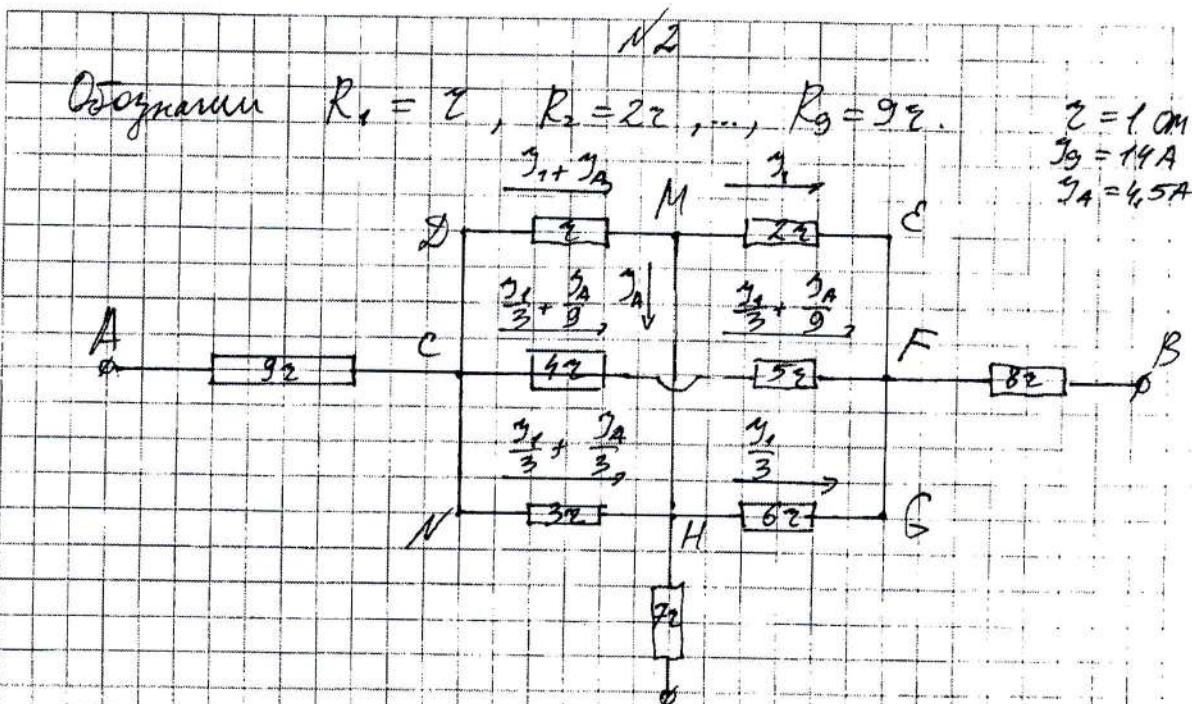 N2
Обозначим R₁ = r, R₂ = 2r, ..., R₉ = 9r.
r = 1 Ом
J₉ = 14 А
J_A = 4,5 А
J₁ + J_A
J₁
D
r
M
2r
E
J₁/3 + J_A/9
J_A
J₁/3 + J_A/9
A
9r
C
4r
5r
F
8r
B
J₁/3 + J_A/3
J₁/3
N
3r
H
6r
G
7r